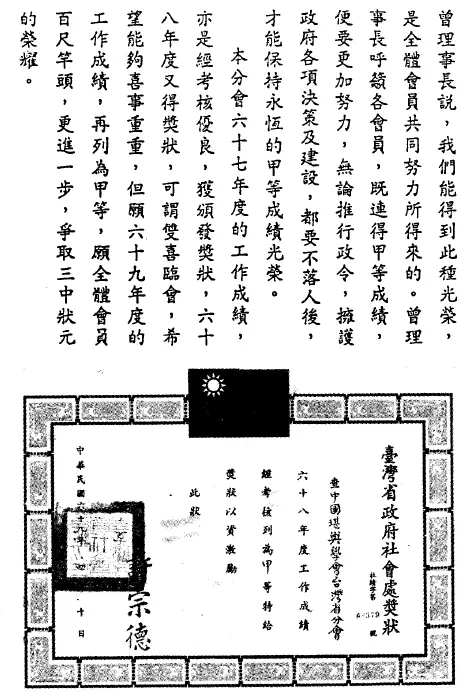 曾理事長說，我們能得到此種光榮，
是全體會員共同努力所得來的。曾理
事長呼籲各會員，既連得甲等成績，
便要更加努力，無論推行政令，擁護
政府各項決策及建設，都要不落人後，
才能保持永恆的甲等成績光榮。
本分會六十七年度的工作成績，
亦是經考核優良，獲頒發獎狀，六十
八年度又得獎狀，可謂雙喜臨會，希
望能夠喜事重重，但願六十九年度的
工作成績，再列為甲等，願全體會員
百尺竿頭，更進一步，爭取三中狀元
的榮耀。
臺灣省政府社會處獎狀
社績字第
號
查中國堪輿學會台灣省分會
六十八年度工作成績
經考核列為甲等特給
獎狀以資激勵
此狀
宗德
中華民國六十九年
十日